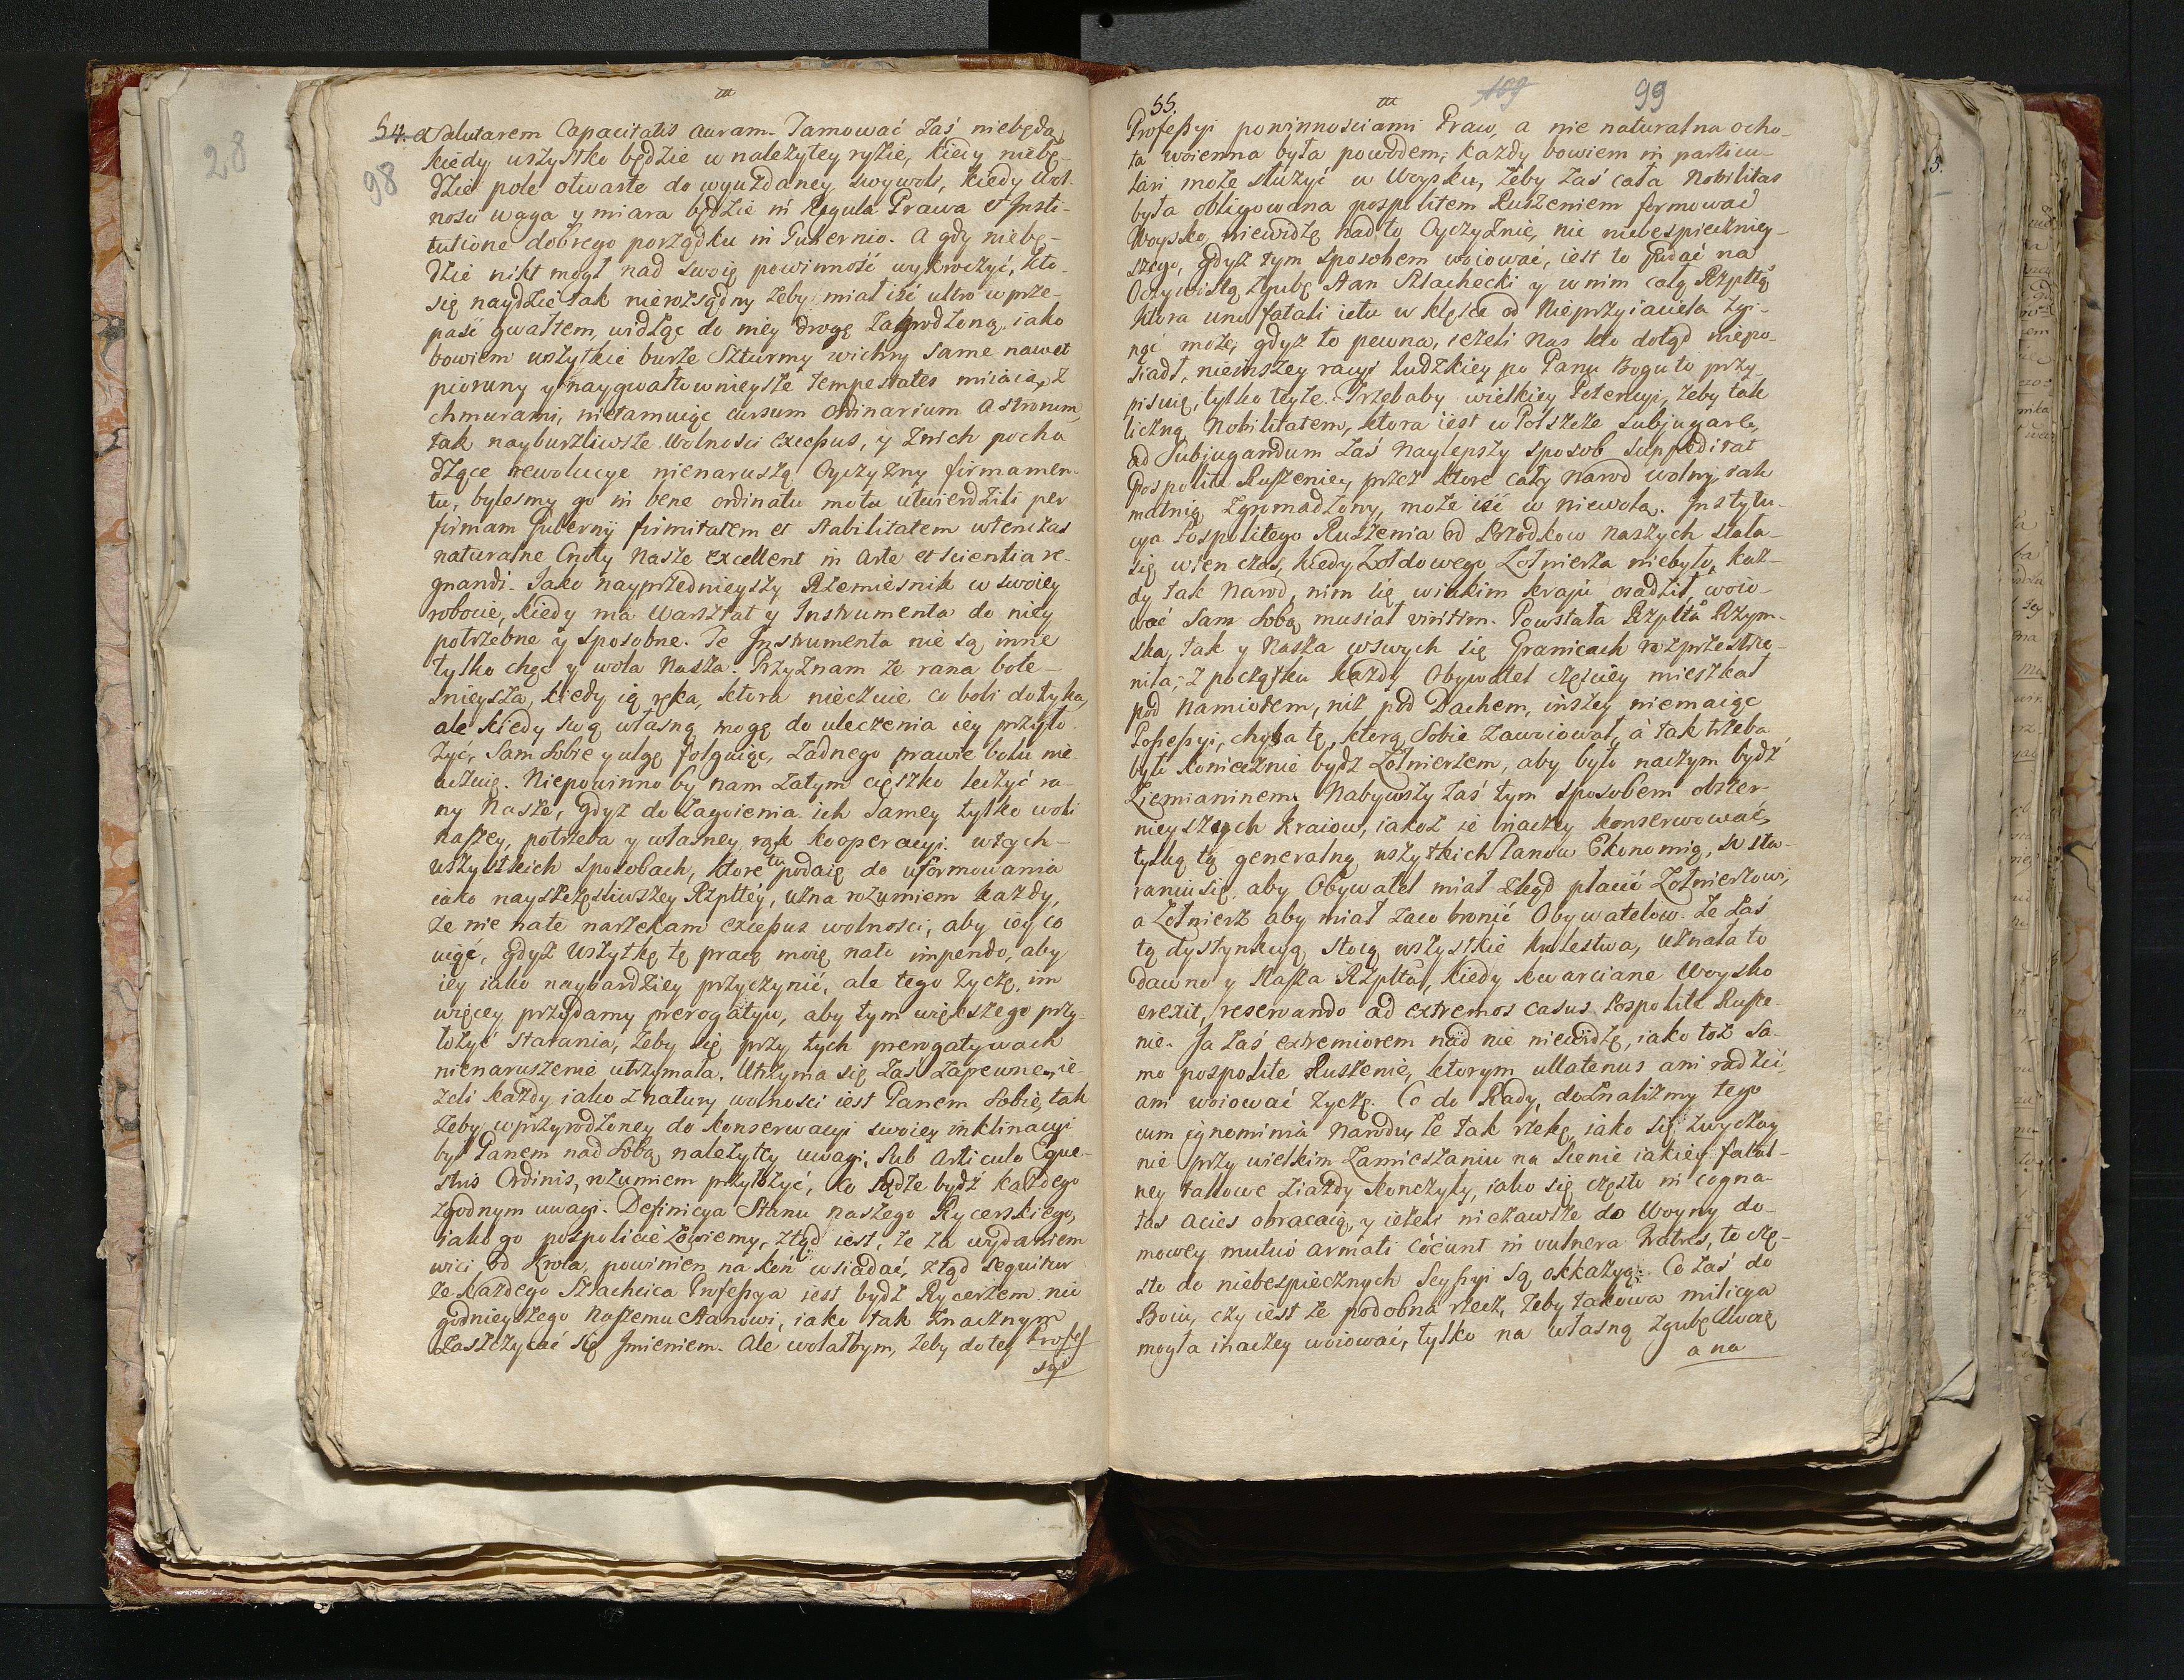 28
54.
98
et salutarem Capacitatis auram. Tamować zaś niebędą
kiedy wszystko będzie w należytey ryzie, kiedy niebę-
dzie pole otwarte do wyuzdaney swywoli, kiedy wol-
ności waga y miara będzie in Regula Prawa et Insti-
tutione dobrego porządku in Gubernio. A gdy niebę-
dzie nikt mogł nad swoię powinność wykroczyć, kto
się naydzie tak nierozsądny żeby miał iść ultro w prze-
paść gwałtem, widząc do niey drogę zagrodzoną, iako
bowiem wszytkie burze Szturmy wichry same nawet
pioruny y naygwałtownieysze tempestates miiaią z
chmurami, nietamuiąc cursum ordinarium Astrorum,
tak nayburzliwsze wolności excessus, y znich pocho
dzące rewolucye nienaruszą Oyczyzny firmamen-
tu, bylesmy go in bene ordinatu motu utwierdzili per
firmam Gubernij firmitatem et stabilitatem wtenczas
naturalne Cnoty nasze excellent in Arte et scientia re-
gnandi. Jako nayprzednieyszy Rzemieśnik w swoiey
robocie, kiedy ma Warsztat y Instrumenta do niey
potrzebne y sposobne. Te Instrumenta nie są inne
tylko chęć y wola nasza. Przyznam że rana bole-
śnieysza, kiedy ią ręka, ktora nieczuie co boli dotyka,
ale kiedy swą własną mogę do uleczenia iey przyło
żyć, sam sobie y ulgę folguiąc, żadnego prawie bolu nie
uczuię. Niepowinno by nam zatym ciężko leczyć ra-
ny nasze, gdyż do zagoienia ich samey tylko woli
naszey, potrzeba y własney rąk kooperacyi. w tych-
wszystkich sposobach, ktore tu podaię do uformowania
iako nayszczęśliwszey Rzpltey, uzna rozumiem każdy,
że nie nato narzekam excessus wolności, aby iey co
uiąć, gdyż wszytkę tę pracę moię nato impendo, aby
iey iako naybardziey przyczynić, ale tego życzę, im
więcey przydamy prerogatyw, aby tym większego przy-
łożyć starania, żeby się przy tych prerogatywach
nienaruszenie utrzymała. Utrzyma się zaś zapewne, ie-
żeli każdy iako z natury wolności iest Panem sobie, tak
żeby w przyrodzoney do konserwacyi swoiey inklinacyi
był Panem nad sobą należytey uwagi, sub Articulo Eque-
stris Ordinis, rozumiem przyłożyć, co sądzę bydź każdego
zgodnym uwagi. Definicya Stanu naszego Rycerskiego,
iako go pospolicie zowiemy, ztąd iest, że za wydaniem
wici od Krola, powinien na koń wsiadać, ztąd sequitur
że każdego Szlachcica Professya iest bydź Rycerzem. nic
godnieyszego naszemu Stanowi, iako tak znacznym
zaszczycać się Imieniem. Ale wolałbym, żeby do tey Profes
syi
55.
109
99
Professyi powinnościami Praw, a nie naturalna ocho-
ta woienna była powodem; każdy bowiem in particu-
lari może służyć w Woysku, żeby zaś cała Nobilitas
była obligowana pospolitem Ruszeniem formować
Woysko, niewidzę nad to Oyczyznie, nic niebespieczniey-
szego, gdyż tym sposobem woiować, iest to podać na
Oczywistą zgubę Stan Szlachecki y w nim całą Rzpltą
ktora uno fatali ictu w klęsce od Nieprzyiaciela zgi-
nąć może, gdyż to pewna, ieżeli nas kto dotąd niepo-
siadł, nieinszey racyi ludzkiey po Panu Bogu to przy-
pisuię, tylko teyże. Trzebaby wielkiey Potencyi, żeby tak
liczną Nobilitatem, ktora iest w Polszcze subjugare,
ad Subjugandum zaś naylepszy sposob suppeditat
Pospolite Ruszenie, przez ktore cały narod wolny, iak
matnią zgromadzony, może iść w niewolą. Instytu-
cya Pospolitego Ruszenia od Przodkow naszych stała-
się wten czas, kiedy Żołdowego Żołnierza niebyło, każ-
dy tak Narod, nim się w iakim kraju osadził, woio-
wać sam sobą musiał viritim. Powstała Rzplta Rzym-
ska, tak y nasza w swych się Granicach rozprzestrze-
niła, z początku każdy Obywatel częściey mieszkał
pod namiotem, niż pod Dachem, inszey niemaiąc
Possessyi, chyba tę, ktorą sobie zawoiował, a tak trzeba
było koniecznie bydz Żołnierzem, aby było naczym bydź
Ziemianinem. Nabywszy zaś tym sposobem obszer-
nieyszych kraiow, iakoż ie inaczey konserwować,
tylko tą generalną wszytkich Panow Ekonomią, w sta-
raniu się, aby Obywatel miał zkąd płacić Żołnierzowi,
a Żołnierz aby miał zaco bronić Obywatelow. Że zaś
tą dystynkcyą stoią wszystkie krolestwa, uznała to
dawno y nasza Rzplta, kiedy kwarciane Woysko
erexit, reservando ad extremos casus Pospolite Rusze-
nie. Ja zaś extremiorem nad nie niewidzę, iako toż sa-
mo pospolite Ruszenie, ktorym ullatenus ani radzić
ani woiować życzę. Co do Rady, doznalizmy tego
cum ignominia Narodu, że tak rzekę, iako się zwyczay
nie przy wielkim zamieszaniu na scenie iakiey fatal-
ney takowe ziazdy kończyły, iako się często in cogna-
tas acies obracaią, y ieżeli nie zawsze do Woyny do-
mowey mutuo armati coeunt in vulnera Fratres, to czę-
sto do niebespiecznych Scyssyi są okkazyą. Co zaś do
Boiu, czy iest że podobna rzecz, żeby takowa milicya
mogła inaczey woiować, tylko na własną zgubę swoię
a na